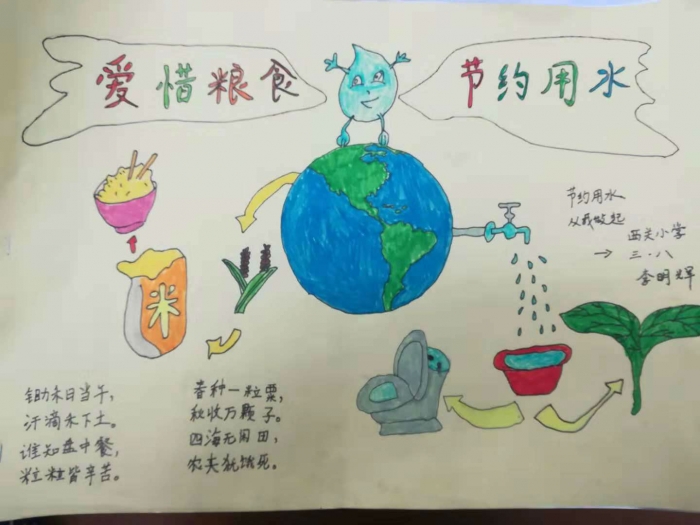 爱惜粮食
节约用水
节约用水
从我做起
→ 西关小学
三·八
李明辉
米
锄禾日当午,
汗滴禾下土。
谁知盘中餐,
粒粒皆辛苦。
春种一粒粟,
秋收万颗子。
四海无闲田,
农夫犹饿死。